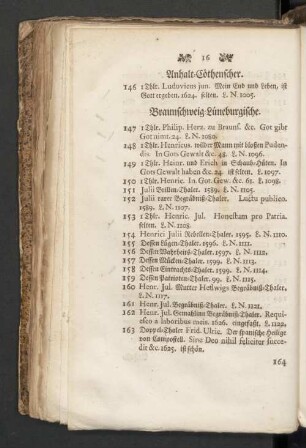 16
Anhalt-Cöthenscher.
146 1 Thlr. Ludovicus jun. Mein End und Leben, ist
Gott ergeben. 1624. selten. L. N. 1005.
Braunschweig-Lüneburgische.
147 1 Thlr. Philip. Herz. zu Braunſ. &c. Got gibt
Got nimt. 24. L. N. 1080.
148 1 Thlr. Henricus. wilder Mann mit blosen Puden-
dis. In Gots Gewalt &c. 48. L. N. 1096.
149 1 Thlr. Heinr. und Erich in Schaub-Hüten. In
Gots Gewalt haben 24. ist selten. L. 1097.
150 1 Thlr. Henric. In Got. Gew. &c. 65. L. 1098.
151 Julii Brillen-Thaler. 1589. L. N. 1105.
152 Julii rarer Begräbniß-Thaler. Luctu publico.
1589. L. N. 1107.
153 1 Thlr. Henric. Jul. Honestum pro Patria.
selten. L. N. 1108.
154 Henrici Julii Rebellen-Thaler. 1595. L. N. 1110.
155 Dessen Lügen-Thaler. 1596. L. N. 1111.
156 Dessen Wahrheits-Thaler. 1597. L. N. 1112.
157 Dessen Mücken-Thaler. 1599. L. N. 1113.
158 Dessen Eintrachts-Thaler. 1599. L. N. 1114.
159 Dessen Patrioten-Thaler. 99. L. N. 1115.
160 Henr. Jul. Mutter Hedwigs Begräbniß-Thaler.
L. N. 1117.
161 Henr. Jul. Begräbniß-Thaler. L. N. 1121.
162 Henr. Jul. Gemahlinn Begräbniß-Thaler. Requi-
esco a laboribus meis. 1626. eingefaßt. L. 1122.
163 Doppel-Thaler Frid. Ulric. Der spanische Heilige
von Compostell. Sine Deo nihil feliciter succe-
dit &c. 1625. ist schön.
164